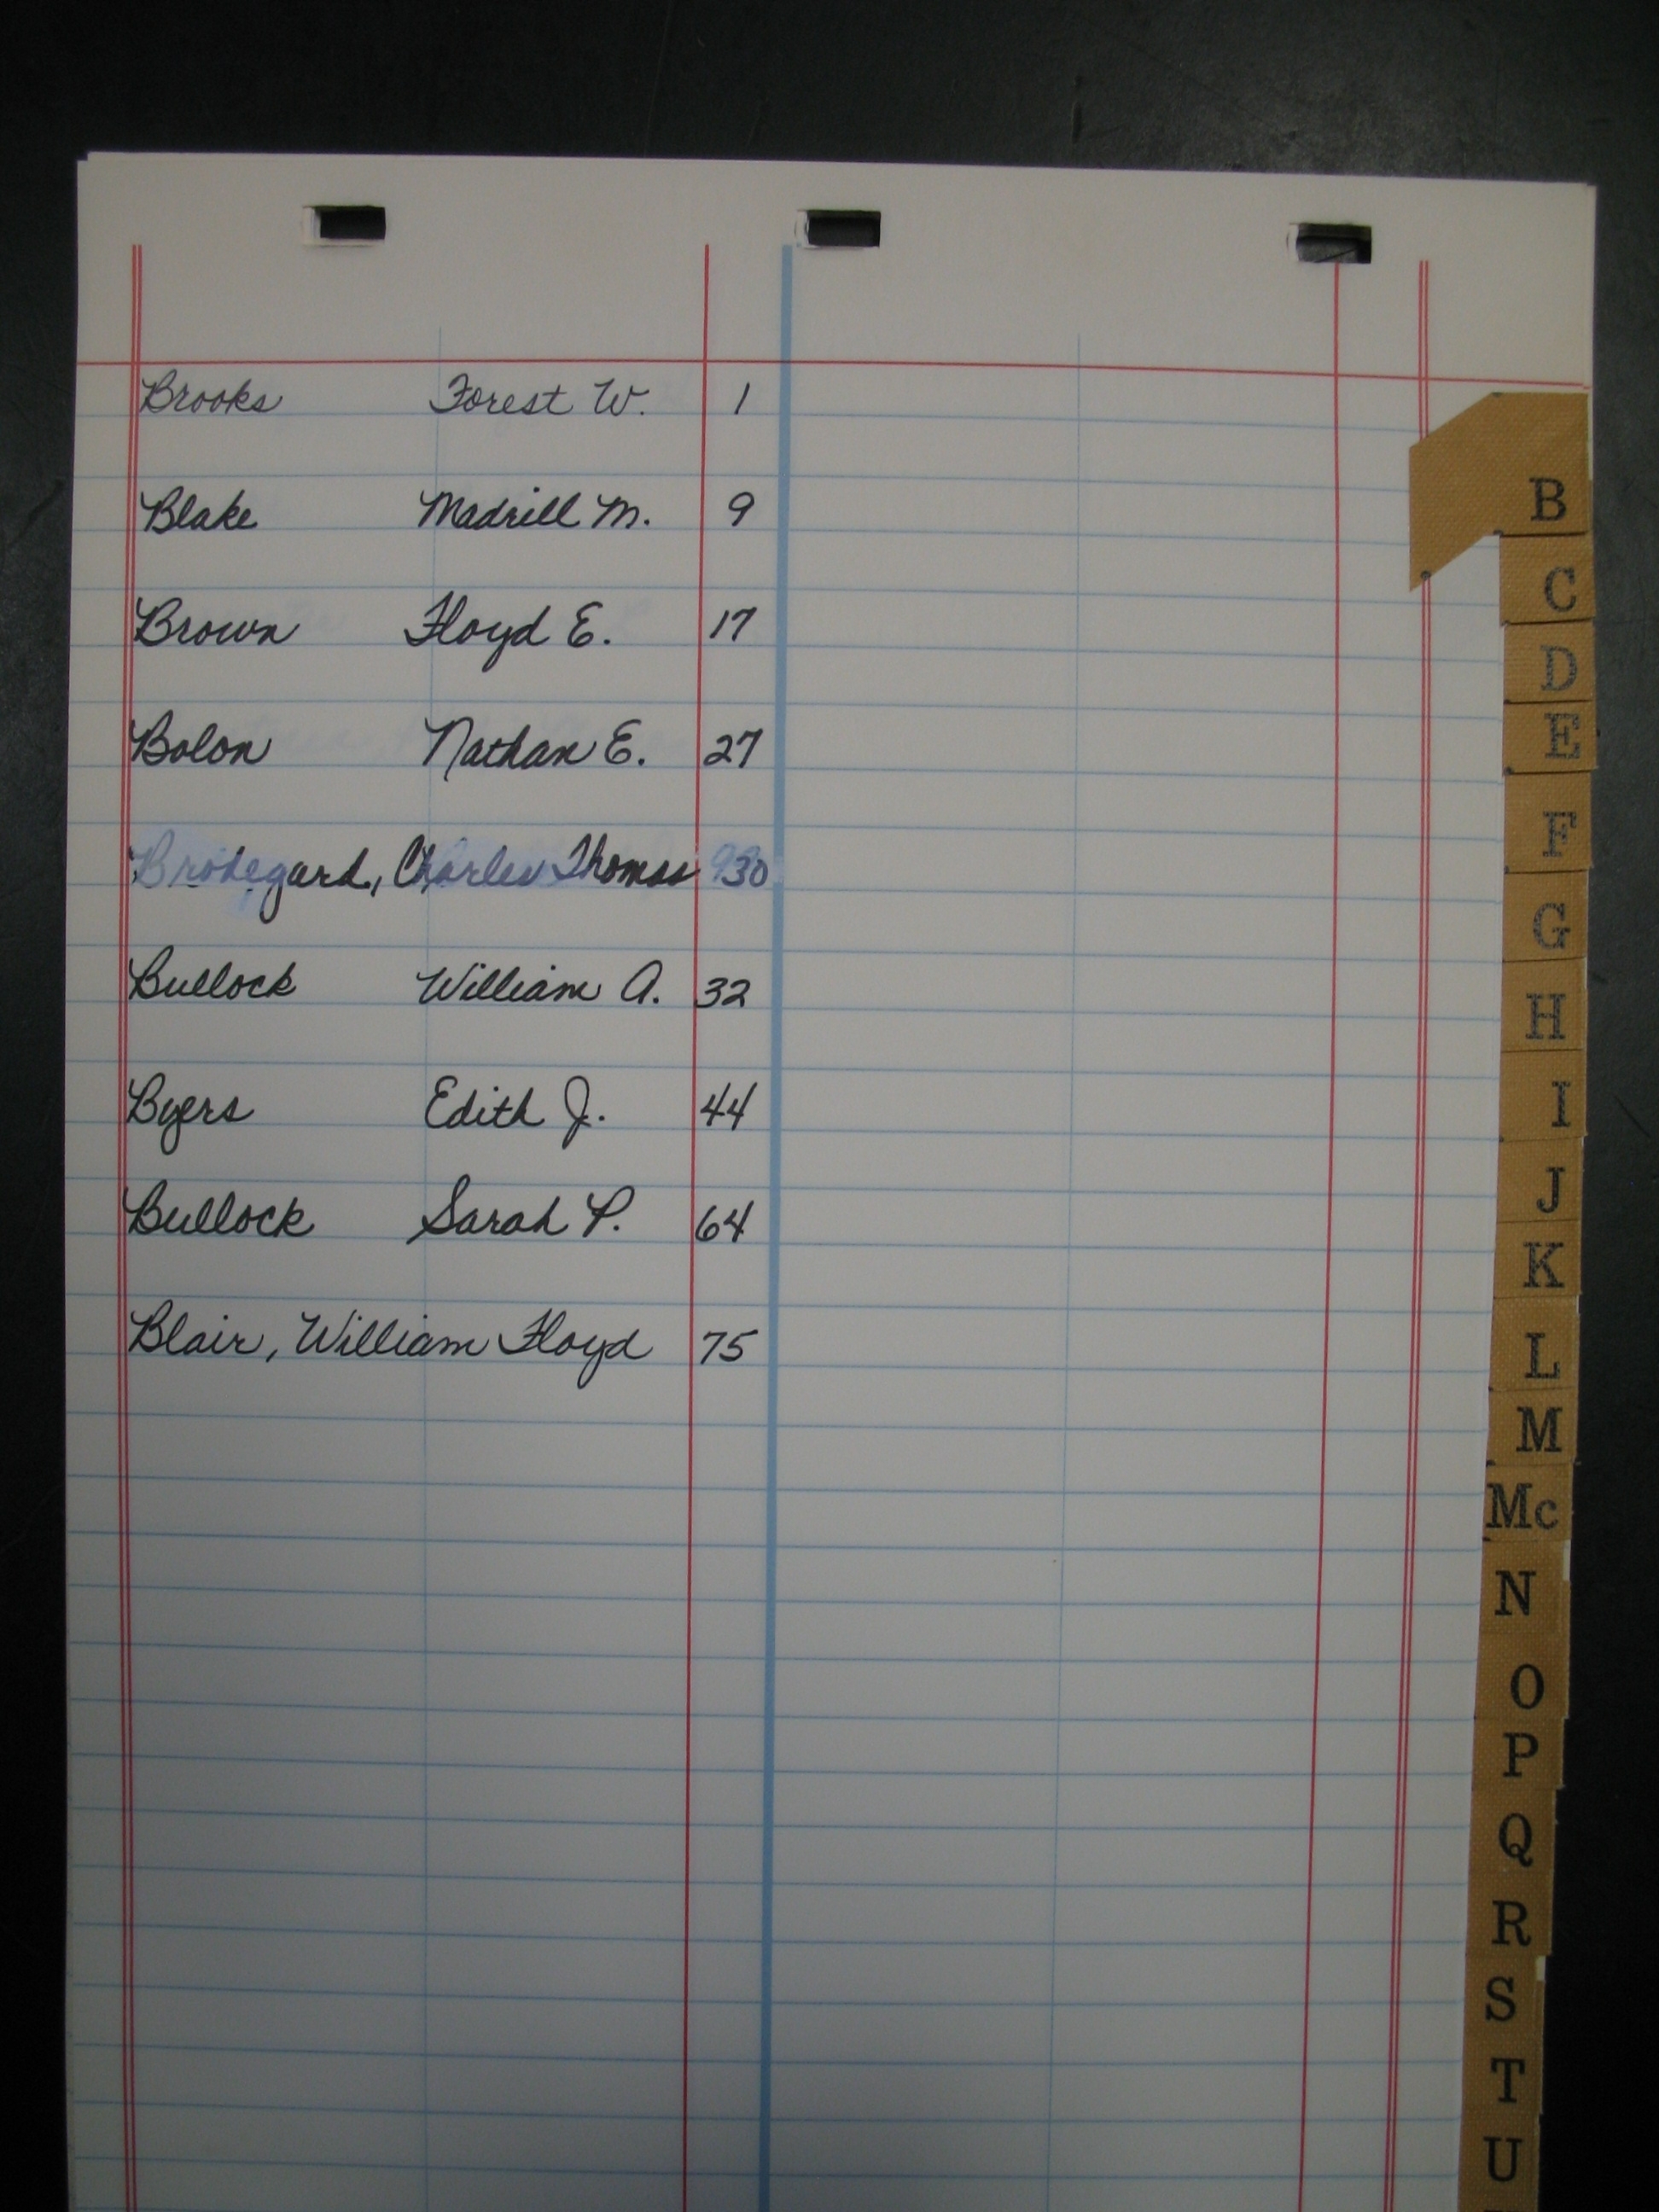 Brooks Forest W. 1
Blake Madrill M. 9
Brown Floyd E. 17
Bolon Nathan E. 27
Charles Thomas 30
Bullock William A. 32
Byers Edith J. 44
Bullock Sarah P. 64
Blair, William Floyd 75
B
C
D
E
F
G
H
I
J
K
L
M
Mc
N
O
P
Q
R
S
T
U